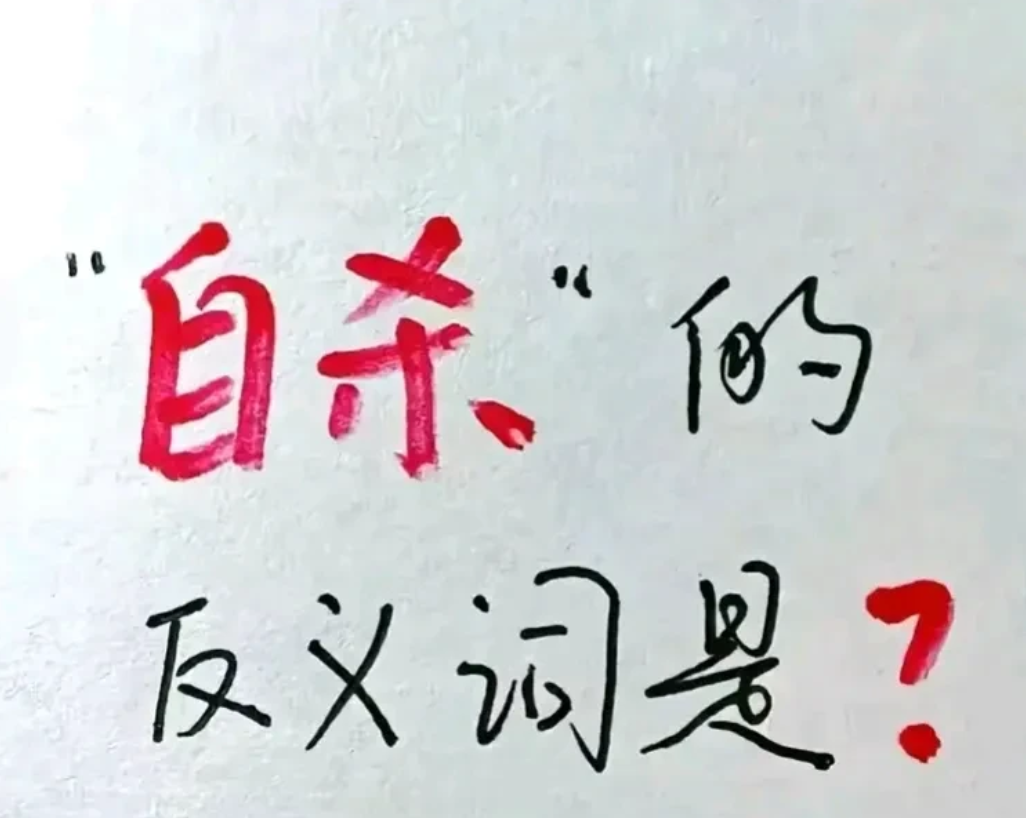 "自杀"的
反义词是?